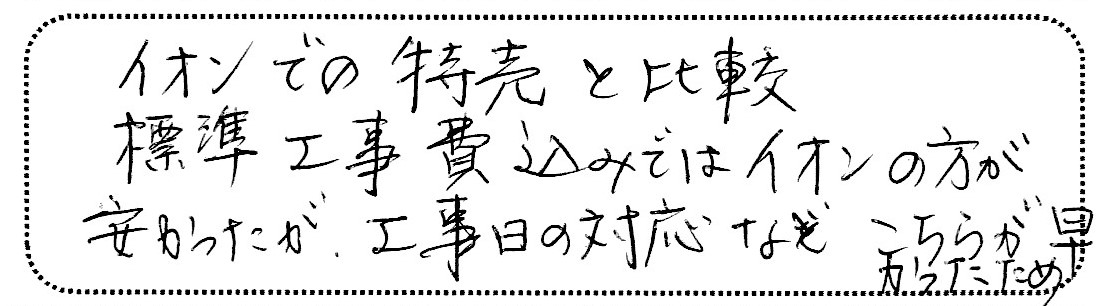 イオンでの特売と比較
標準工事費込みではイオンの方が
安かったが、工事日の対応など こちらが早
かったため